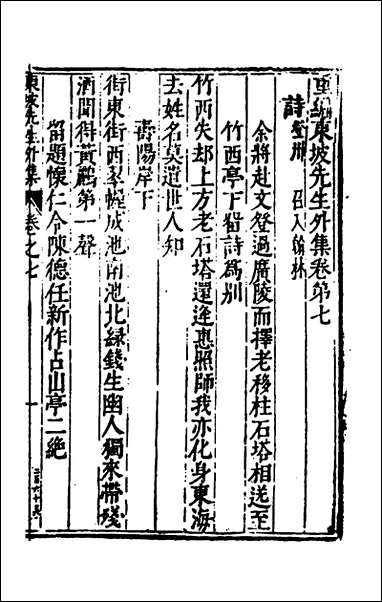 重編東坡先生外集卷第七
詩 登州 召入翰林
余將赴文登過廣陵而擇老移柱石塔相送至
竹西亭下留詩爲別
竹西失却上方老石塔還逢惠照師我亦化身東海
去姓名莫遣世人知
壽陽岸下
街東街西翠幄成池南池北綠錢生幽人獨來帶殘
酒聞得黃鸝第一聲
留題懷仁令陳德任新作占山亭二絶
東坡先生外集 卷之七
一